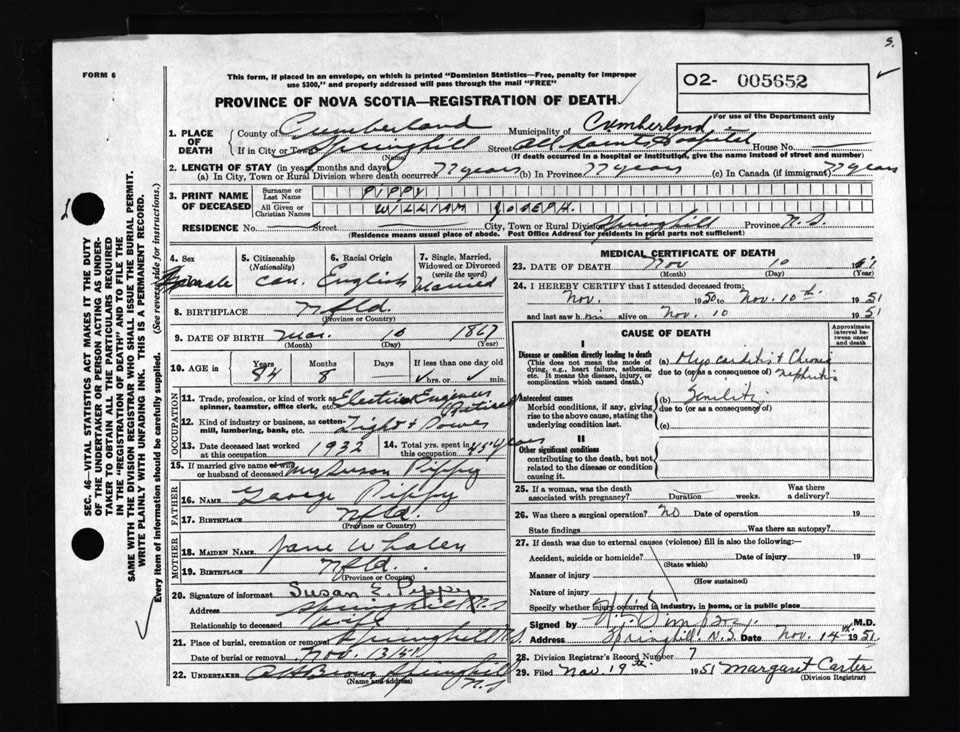 S.
FORM 6
This form, if placed in an envelope, on which is printed "Dominion Statistics—Free, penalty for improper
use $300," and properly addressed will pass through the mail "FREE"
O2- 005652
For use of the Department only
PROVINCE OF NOVA SCOTIA—REGISTRATION OF DEATH
1. PLACE OF DEATH { County of Cumberland Municipality of Cumberland
If in City or Town Springhill (Name) Street All Saints Hospital House No. —
(If death occurred in a hospital or institution, give the name instead of street and number)
2. LENGTH OF STAY (in years, months and days)
(a) In City, Town or Rural Division where death occurred 77 years (b) In Province 77 years (c) In Canada (if immigrant) 77 years
3. PRINT NAME OF DECEASED { Surname or Last Name PIPPY
All Given or Christian Names WILLIAM JOSEPH.
RESIDENCE No. — Street — City, Town or Rural Division Springhill Province N.S.
(Residence means usual place of abode. Post Office Address for residents in rural parts not sufficient)
4. Sex male
5. Citizenship (Nationality) Can.
6. Racial Origin English
7. Single, Married, Widowed or Divorced (write the word) Married
8. BIRTHPLACE Nfld.
(Province or Country)
9. DATE OF BIRTH Mar. 10 1867
(Month) (Day) (Year)
10. AGE in { Years 84 Months 8 Days If less than one day old hrs. or min.
OCCUPATION
11. Trade, profession, or kind of work as spinner, teamster, office clerk, etc. Electric Engineer Retired
12. Kind of industry or business, as cotton-mill, lumbering, bank, etc. Light & Power
13. Date deceased last worked at this occupation 1932
14. Total yrs. spent in this occupation 45 years
15. If married give name of wife or husband of deceased Mrs Susan Pippy
FATHER
16. NAME George Pippy
17. BIRTHPLACE Nfld.
(Province or Country)
MOTHER
18. MAIDEN NAME Jane Whalen
19. BIRTHPLACE Nfld.
(Province or Country)
20. Signature of informant Susan E. Pippy
Address Springhill N.S
Relationship to deceased Wife
21. Place of burial, cremation or removal Springhill N.S.
Date of burial or removal Nov. 13/51
22. UNDERTAKER A H Brown Springhill N.S
(Name and Address)
MEDICAL CERTIFICATE OF DEATH
23. DATE OF DEATH Nov 10 1951
(Month) (Day) (Year)
24. I HEREBY CERTIFY that I attended deceased from:
Nov. 1950 to Nov. 10th 1951
and last saw him alive on Nov. 10 1951
CAUSE OF DEATH
Approximate interval between onset and death
I
Disease or condition directly leading to death
(This does not mean the mode of dying, e.g., heart failure, asthenia, etc. It means the disease, injury, or complication which caused death.)
(a) Myocarditis & Chronic Nephritis
due to (or as a consequence of)
Antecedent causes
Morbid conditions, if any, giving rise to the above cause, stating the underlying condition last.
(b) Senility
due to (or as a consequence of)
(c)
II
Other significant conditions
contributing to the death, but not related to the disease or condition causing it.
25. If a woman, was the death associated with pregnancy? Duration weeks. Was there a delivery?
26. Was there a surgical operation? No Date of operation 19
State findings Was there an autopsy?
27. If death was due to external causes (violence) fill in also the following:—
Accident, suicide or homicide? (State which) Date of injury 19
Manner of injury
(How sustained)
Nature of injury
Specify whether injury occurred in industry, in home, or in public place
Signed by M.D.
Address Springhill N.S. Date Nov. 14th 1951
28. Division Registrar's Record Number 7
29. Filed Nov. 19th 1951 Margaret Carter
(Division Registrar)
SEC. 46—VITAL STATISTICS ACT MAKES IT THE DUTY
OF THE UNDERTAKER OR PERSON ACTING AS UNDER-
TAKER TO OBTAIN ALL THE PARTICULARS REQUIRED
IN THE "REGISTRATION OF DEATH" AND TO FILE THE
SAME WITH THE DIVISION REGISTRAR WHO SHALL ISSUE THE BURIAL PERMIT.
WRITE PLAINLY WITH UNFADING INK. THIS IS A PERMANENT RECORD.
Every item of information should be carefully supplied. (See reverse side for instructions.)